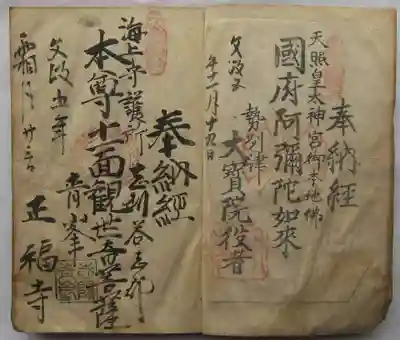 奉納經
天照皇太神宮御本地佛
國府阿彌陀如來
勢州津
大寶院役者
文政五
年十一月十九日
奉納經
海上守護所
志刕答志郡
本尊十一面観世音菩薩
青峯
正福寺
文政五年
霜月廿